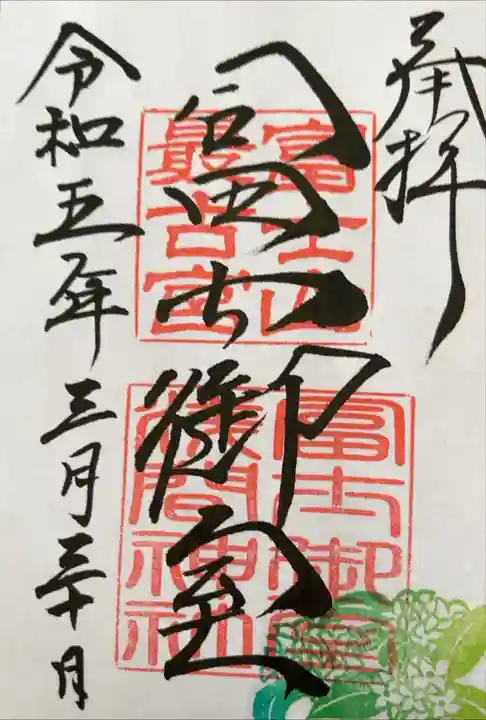 奉拝
冨士御室
富士山
最古宮
冨士御室
淺間神社
令和五年三月三十日